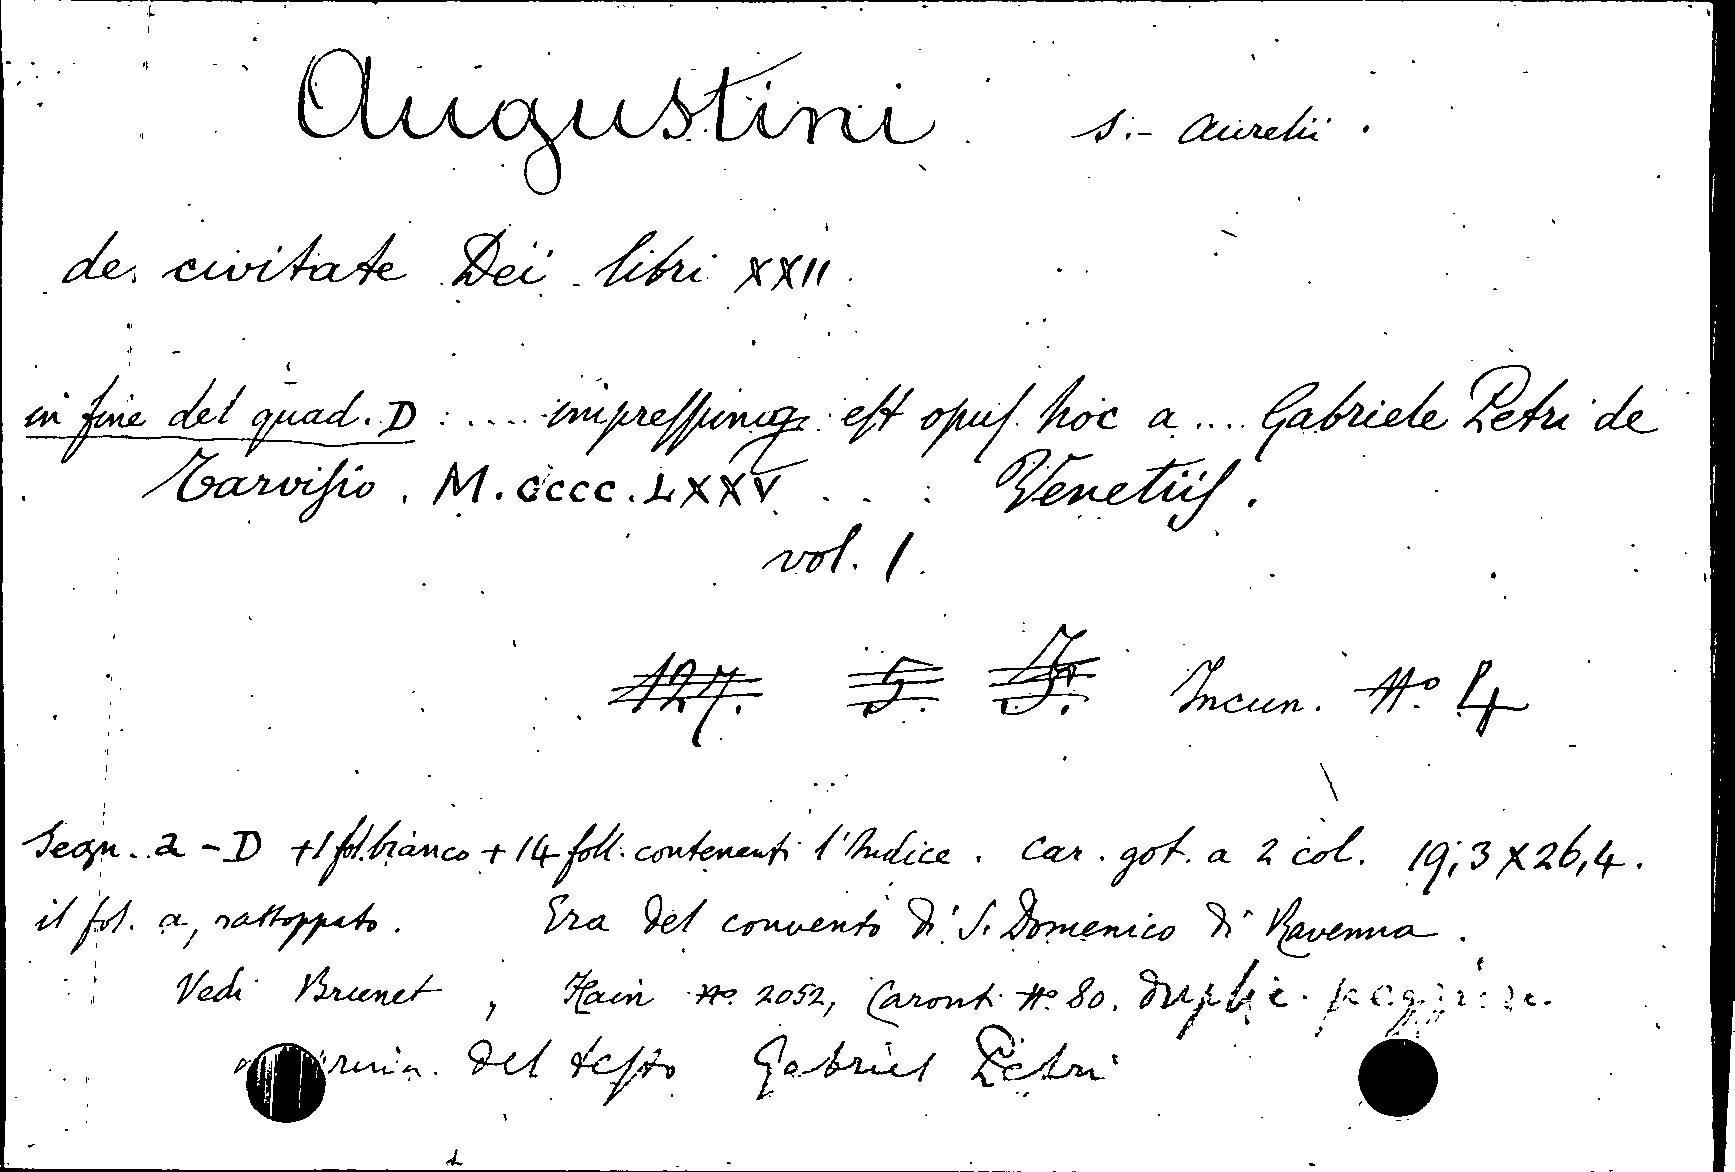 Augustini S.- Aurelii.
de civitate Dei libri XXII
in fine del quad. D : .... est opus hoc a .... Gabriele Petri de
Tarvisio. M.CCCC.LXXV . . . Venetiis.
vol. 1
127. 5. Incun. No. 4
Segn. a - D + 1 fol. bianco + 14 foll. contenenti l'Indice. Car. got. a 2 col. 19,3 x 26,4.
il fol. a, rattoppato. Era del convento di S. Domenico di Ravenna.
Vedi Brunet, Hain No. 2052, Caronti No. 80. Duplic.
del testo Gabriel Petri